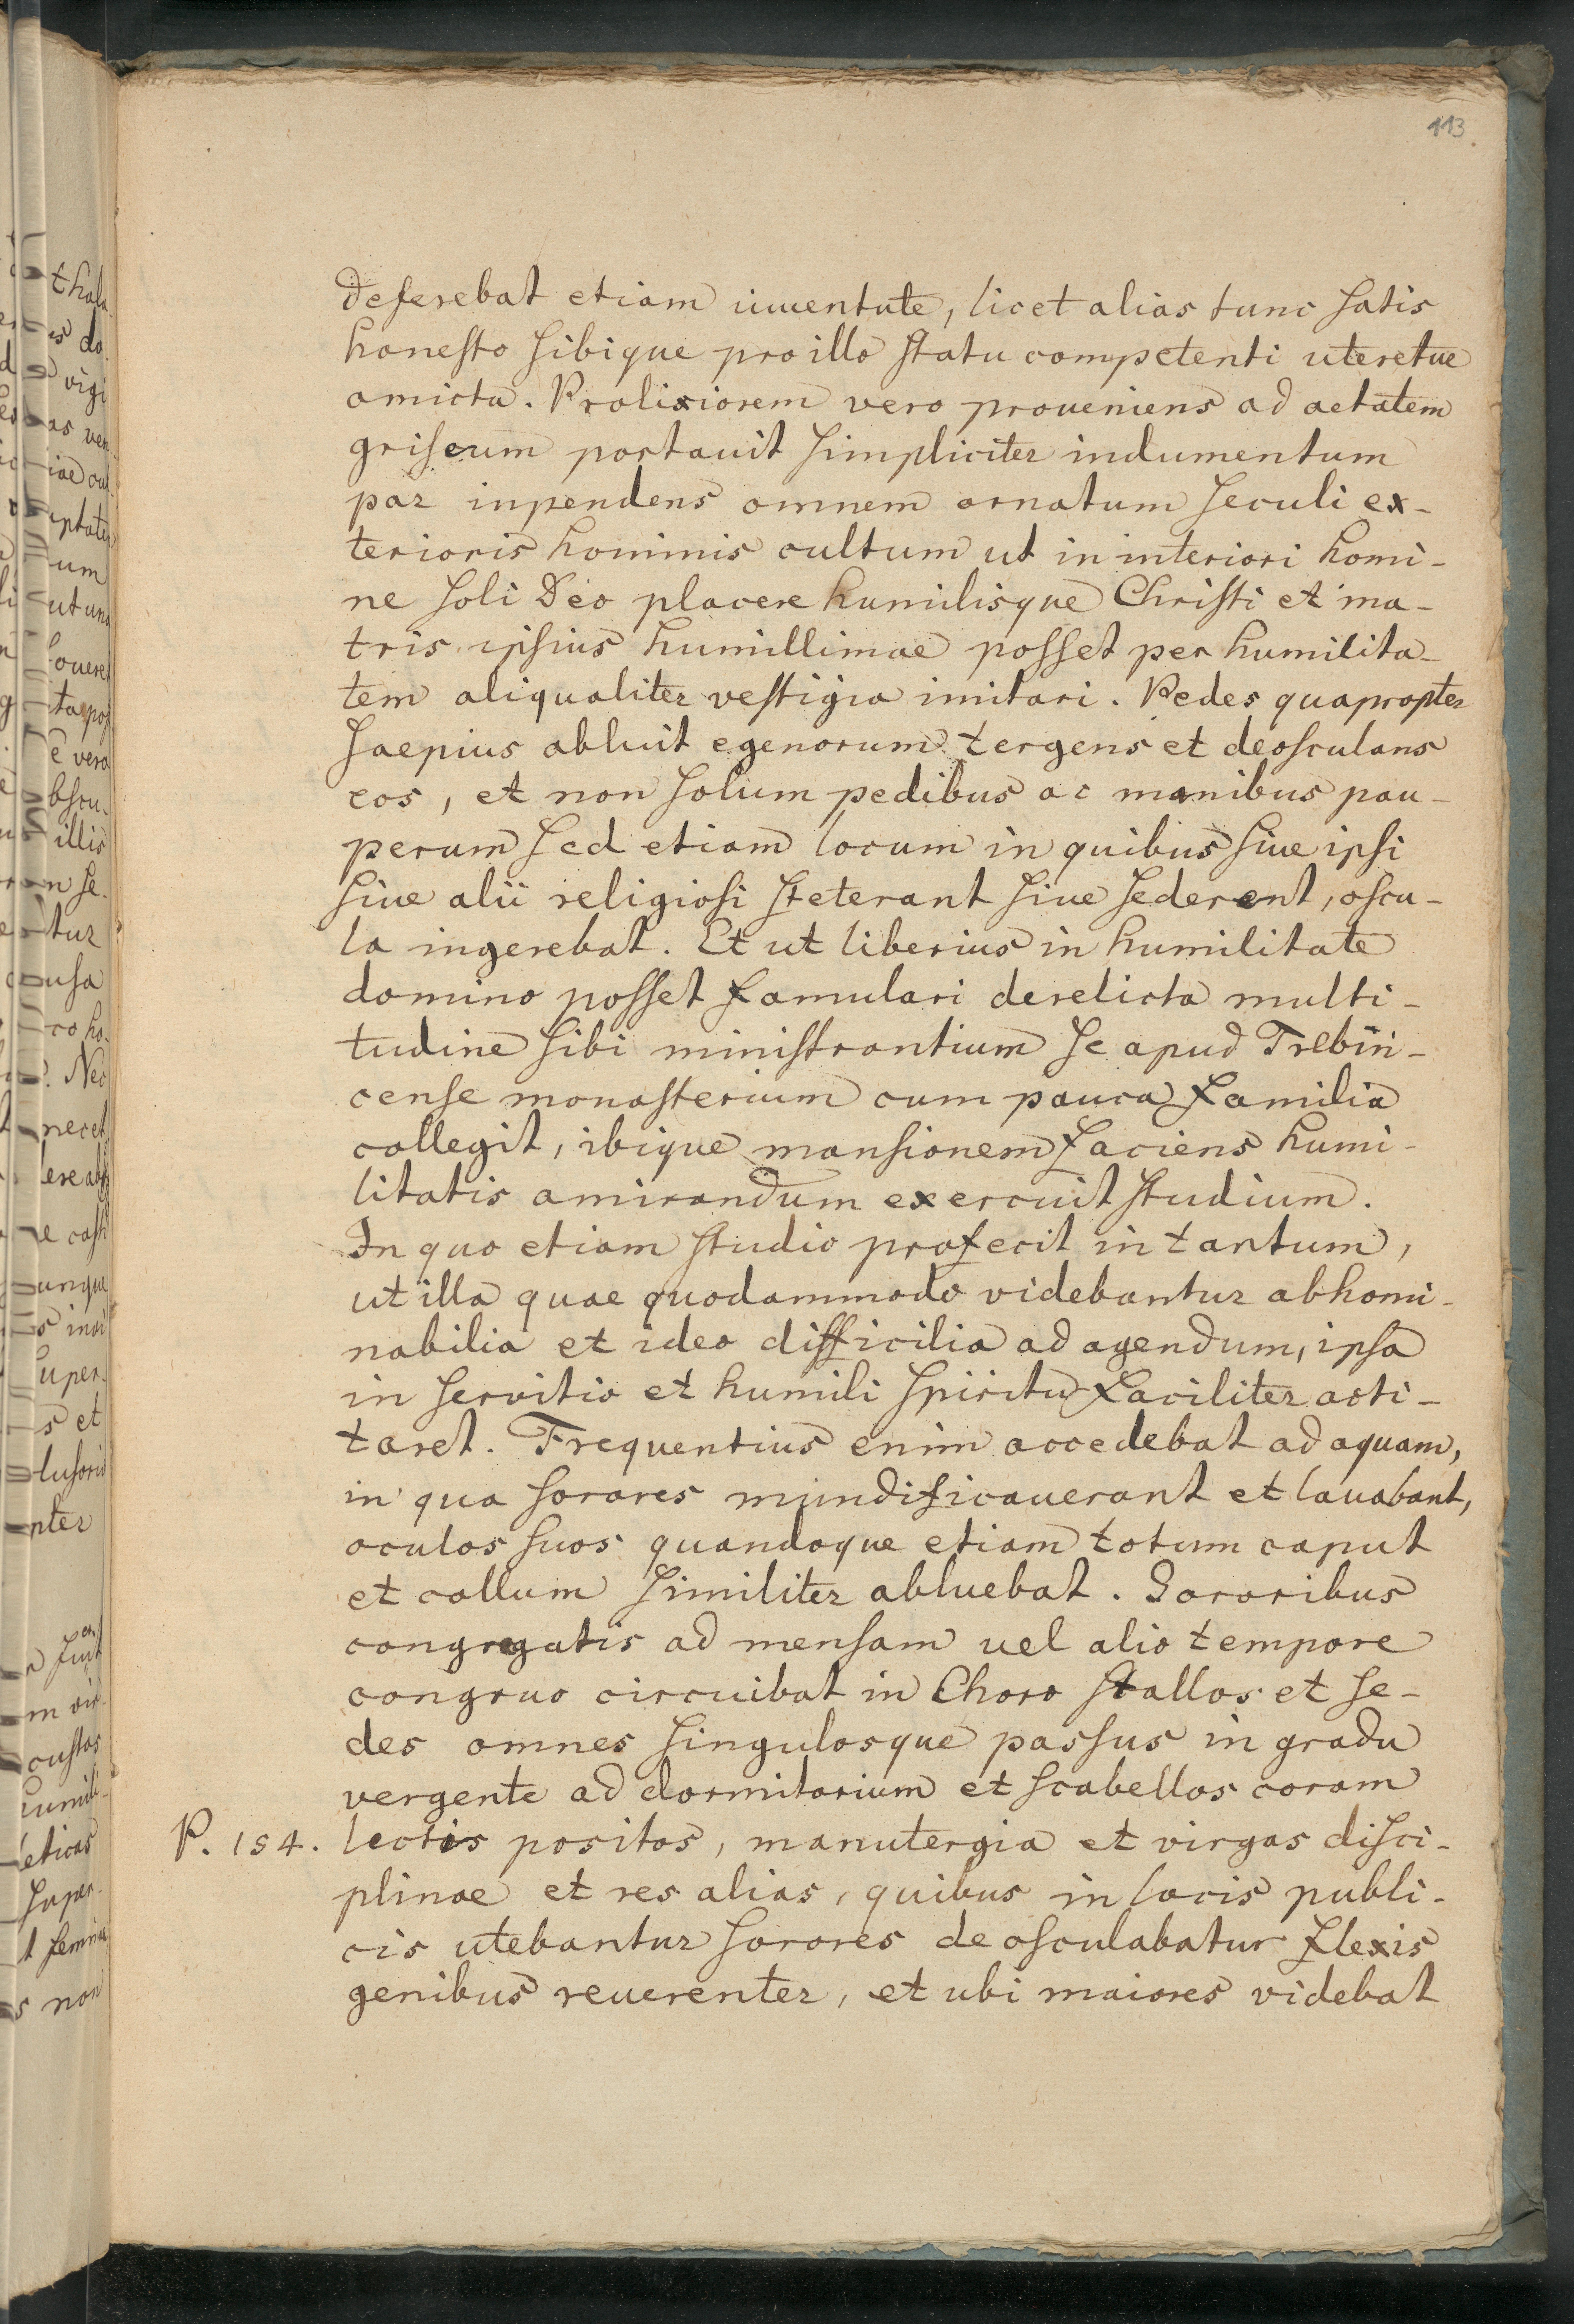 113
deferebat etiam iuuentute, licet alias tunc satis
honesto sibique pro illo statu competenti uteretue
amictu. Prolixiorem vero proueniens ad aetatem
griseum portauit simpliciter indumentum
par inpendens omnem ornatum seculi ex-
terioris hominis cultum ut in interiori homi-
ne soli Deo placere humilisque Christi et ma-
tris ipsius humillimae posset per humilita-
tem aliqualiter vestigia imitari. Pedes quapropter
saepius abluit egenorum tergens et deosculans
eos, et non solum pedibus ac manibus pau-
perum sed etiam locum in quibus siue ipsi
siue alii religiosi steterant siue sederent, oscu-
la ingerebat. Et ut liberius in humilitate
domino posset famulari derelicta multi-
tudine sibi ministrantium se apud Trebin-
cense monasterium cum pauca familia
collegit, ibique mansionem faciens humi-
litatis amirandum exercuit studium.
In quo etiam studio profecit in tantum,
ut illa quae quodammodo videbantur abhomi-
nabilia et ideo difficilia ad agendum, ipsa
in servitio et humili spiritu faciliter acti-
taret. Frequentius enim accedebat ad aquam,
in qua sorores mundificauerant et lauabant,
oculos suos quandoque etiam totum caput
et collum similiter abluebat. Sororibus
congregatis ad mensam uel alio tempore
congruo circuibat in Choro stallos et se-
des omnes singulosque passus in gradu
vergente ad dormitorium et scabellos coram
P. 154. lectis positos, manutergia et virgas disci-
plinae et res alias, quibus in locis publi-
cis utebantur sorores deosculabatur flexis
genibus reuerenter, et ubi maiores videbat